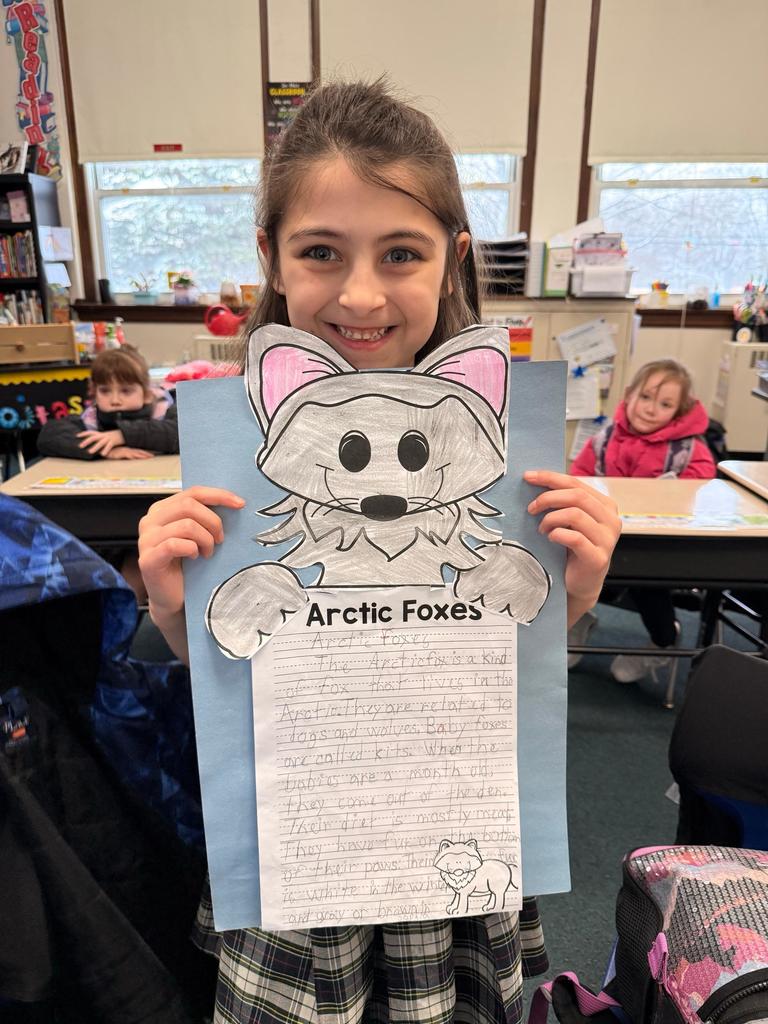 Reading
CLASSROOM
Arctic Foxes
Arctic foxes
The Arctic fox is a kind
of fox that lives in the
Arctic. They are related to
dogs and wolves. Baby foxes
are called kits. When the
babies are a month old,
they come out of the den.
Their diet is mostly meat.
They have fur on the bottom
of their paws. Their fur
is white in the
and gray or brown in